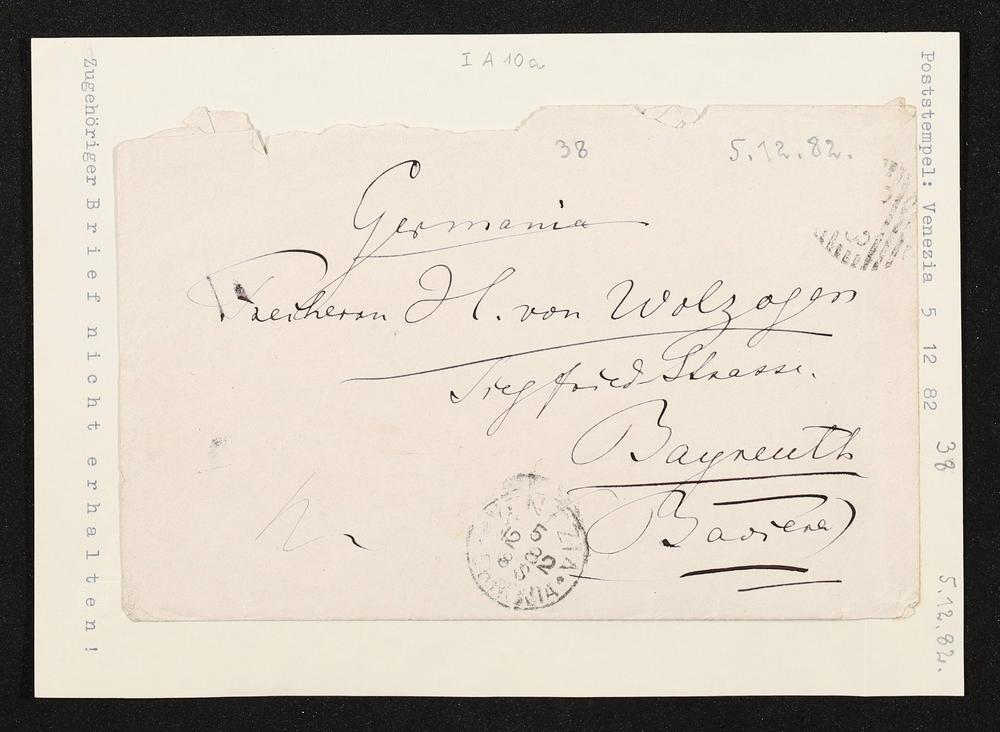 I A 10a
38
5.12.82.
Germania
Freiherrn H. von Wolzogen
Siegfried Strasse.
Bayreuth
(Baviera)
VENEZIA
5 12 82
8 S
FERROVIA
Zugehöriger Brief nicht erhalten!
Poststempel: Venezia 5 12 82
38
5.12.82.